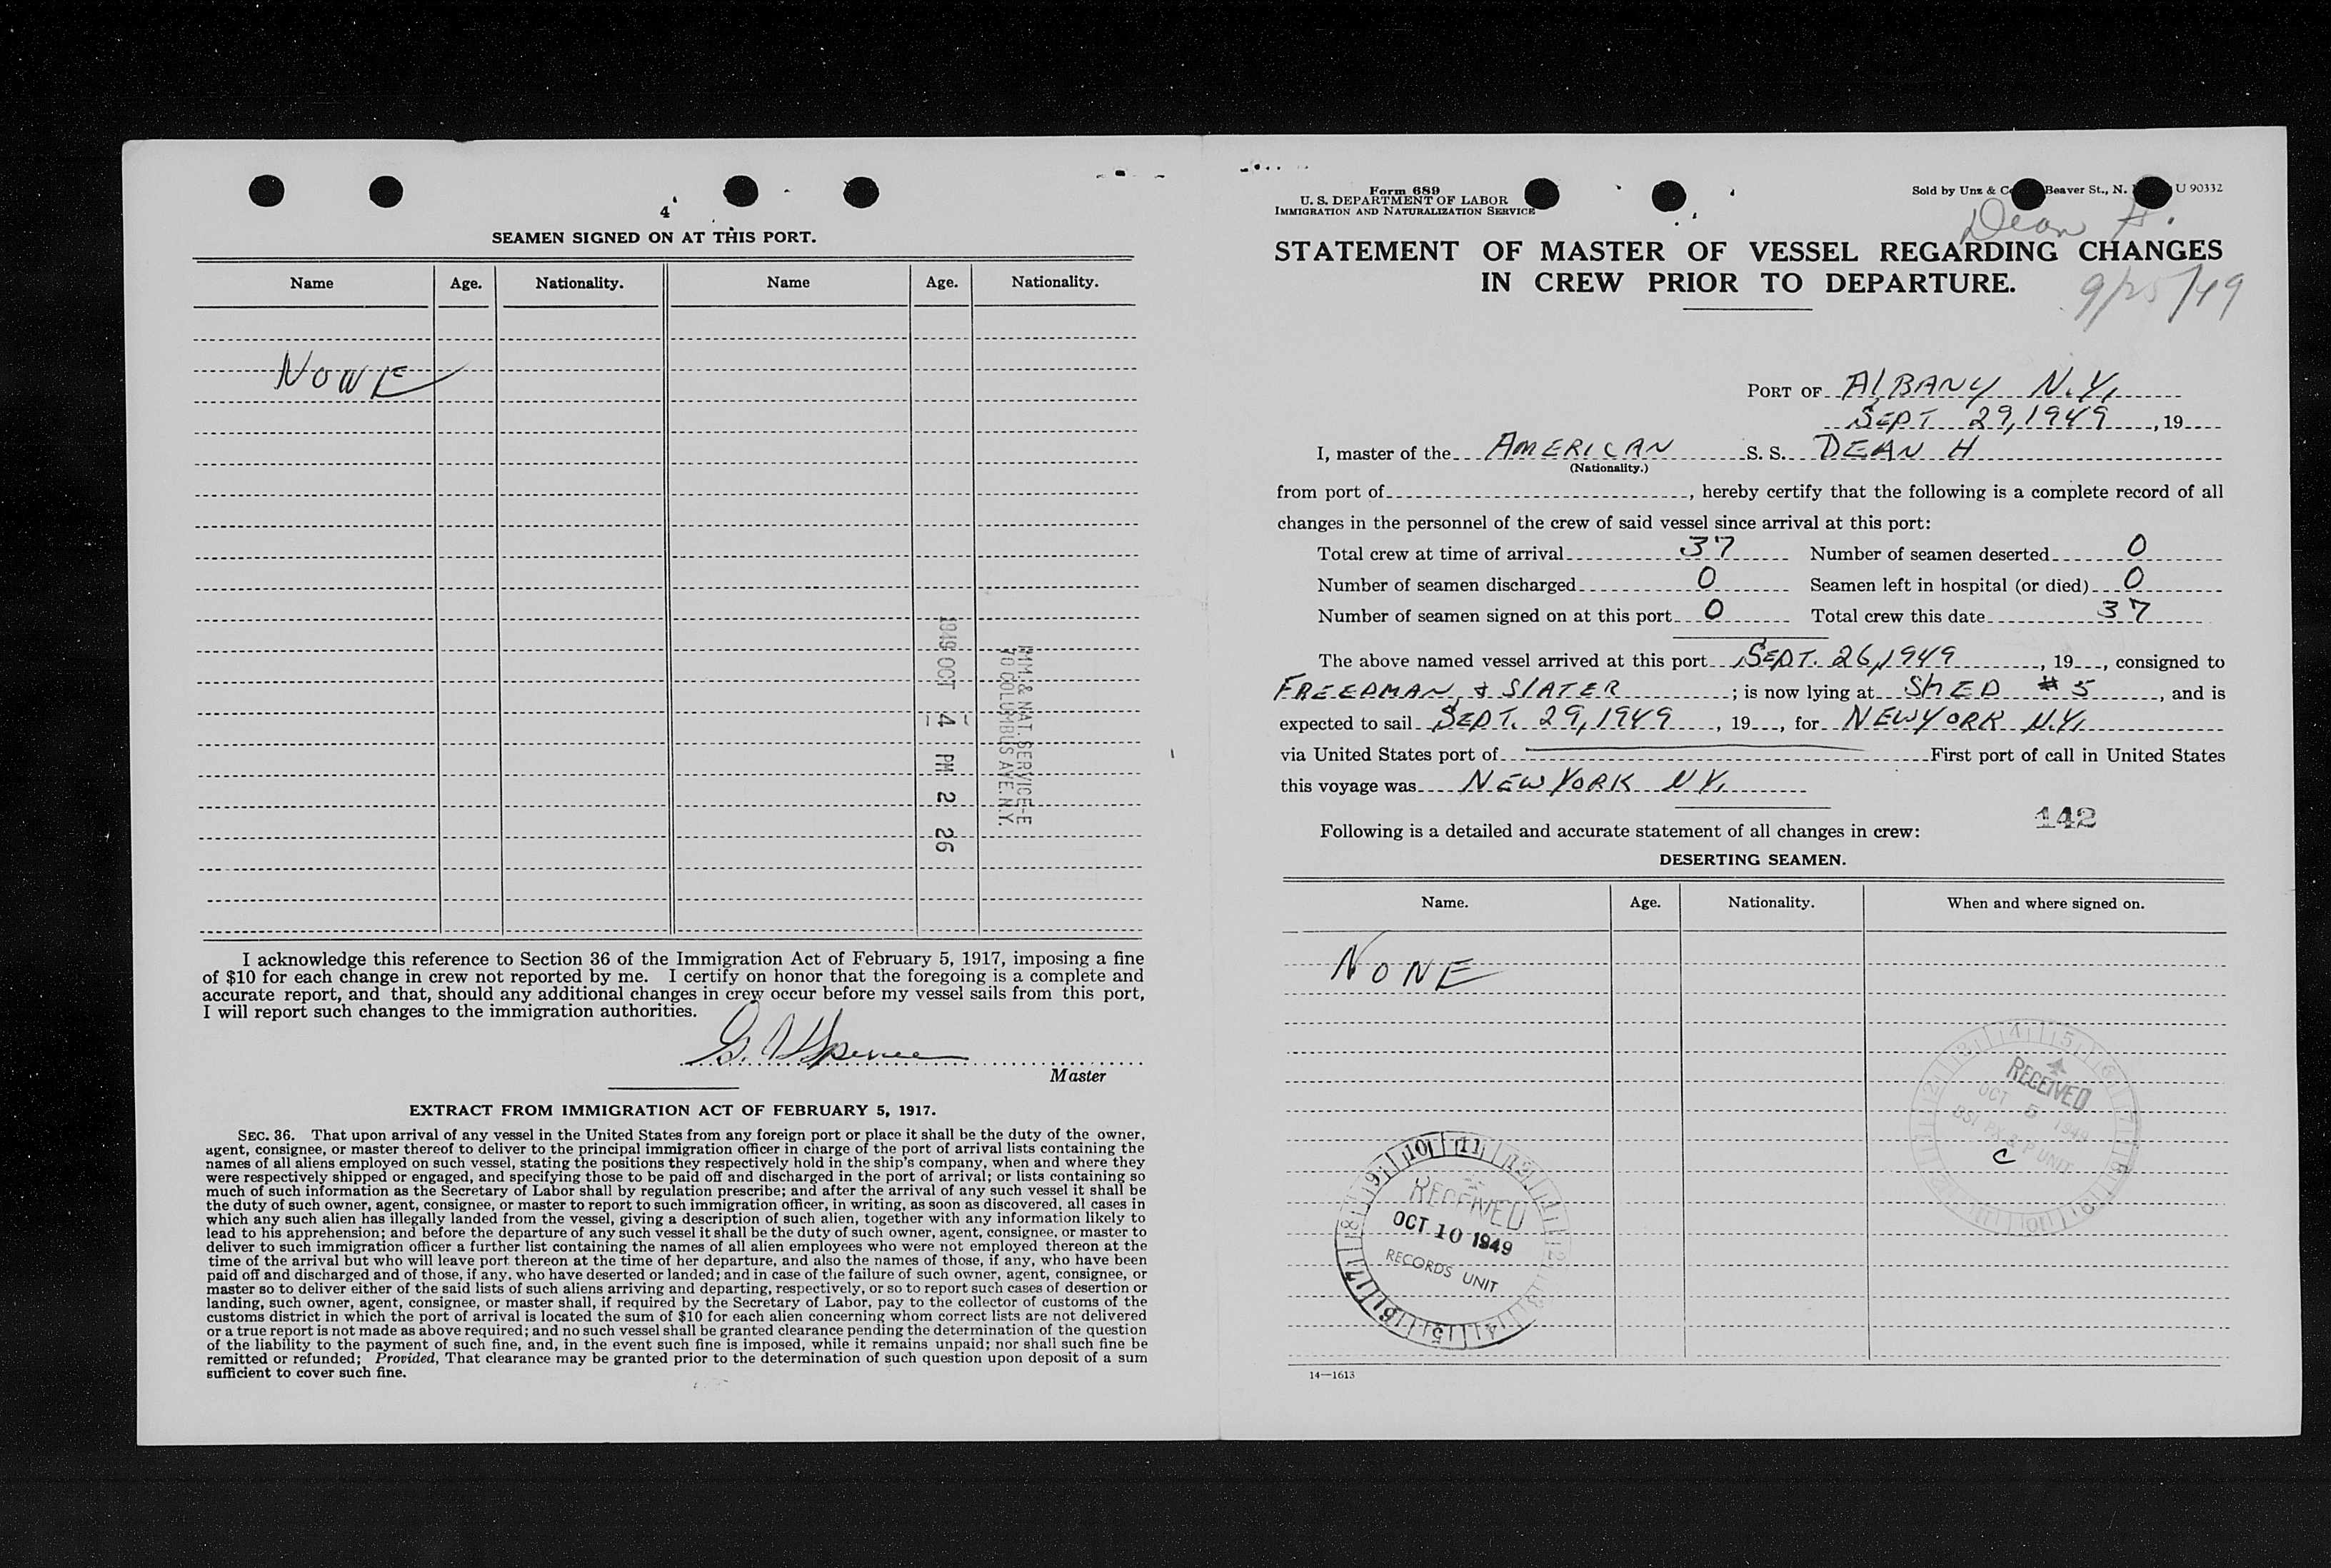 4
SEAMEN SIGNED ON AT THIS PORT.
Name Age. Nationality. Name Age. Nationality.
NONE
1949 OCT 4 PM 2 26
IMM. & NAT. SERVICE-E
70 COLUMBUS AVE. N.Y.
I acknowledge this reference to Section 36 of the Immigration Act of February 5, 1917, imposing a fine
of $10 for each change in crew not reported by me. I certify on honor that the foregoing is a complete and
accurate report, and that, should any additional changes in crew occur before my vessel sails from this port,
I will report such changes to the immigration authorities.
Spence
Master
EXTRACT FROM IMMIGRATION ACT OF FEBRUARY 5, 1917.
SEC. 36. That upon arrival of any vessel in the United States from any foreign port or place it shall be the duty of the owner,
agent, consignee, or master thereof to deliver to the principal immigration officer in charge of the port of arrival lists containing the
names of all aliens employed on such vessel, stating the positions they respectively hold in the ship's company, when and where they
were respectively shipped or engaged, and specifying those to be paid off and discharged in the port of arrival; or lists containing so
much of such information as the Secretary of Labor shall by regulation prescribe; and after the arrival of any such vessel it shall be
the duty of such owner, agent, consignee, or master to report to such immigration officer, in writing, as soon as discovered, all cases in
which any such alien has illegally landed from the vessel, giving a description of such alien, together with any information likely to
lead to his apprehension; and before the departure of any such vessel it shall be the duty of such owner, agent, consignee, or master to
deliver to such immigration officer a further list containing the names of all alien employees who were not employed thereon at the
time of the arrival but who will leave port thereon at the time of her departure, and also the names of those, if any, who have been
paid off and discharged and of those, if any, who have deserted or landed; and in case of the failure of such owner, agent, consignee, or
master so to deliver either of the said lists of such aliens arriving and departing, respectively, or so to report such cases of desertion or
landing, such owner, agent, consignee, or master shall, if required by the Secretary of Labor, pay to the collector of customs of the
customs district in which the port of arrival is located the sum of $10 for each alien concerning whom correct lists are not delivered
or a true report is not made as above required; and no such vessel shall be granted clearance pending the determination of the question
of the liability to the payment of such fine, and, in the event such fine is imposed, while it remains unpaid; nor shall such fine be
remitted or refunded; Provided, That clearance may be granted prior to the determination of such question upon deposit of a sum
sufficient to cover such fine.
Form 689
U. S. DEPARTMENT OF LABOR
IMMIGRATION AND NATURALIZATION SERVICE
Sold by Unz & Beaver St., N. U 90332
Dean H.
STATEMENT OF MASTER OF VESSEL REGARDING CHANGES
IN CREW PRIOR TO DEPARTURE.
9/25/49
PORT OF ALBANY N.Y.
SEPT 29, 1949, 19
I, master of the AMERICAN S. S. DEAN H
(Nationality.)
from port of , hereby certify that the following is a complete record of all
changes in the personnel of the crew of said vessel since arrival at this port:
Total crew at time of arrival 37 Number of seamen deserted 0
Number of seamen discharged 0 Seamen left in hospital (or died) 0
Number of seamen signed on at this port 0 Total crew this date 37
The above named vessel arrived at this port SEPT. 26, 1949, 19 , consigned to
FREEDMAN & SLATER ; is now lying at SHED # 5 , and is
expected to sail SEPT. 29, 1949 , 19 , for NEWYORK N.Y.
via United States port of First port of call in United States
this voyage was NEW YORK N.Y.
142
Following is a detailed and accurate statement of all changes in crew:
DESERTING SEAMEN.
Name. Age. Nationality. When and where signed on.
NONE
RECEIVED
OCT 5 1949
C
RECEIVED
OCT 10 1949
RECORDS UNIT
14—1613